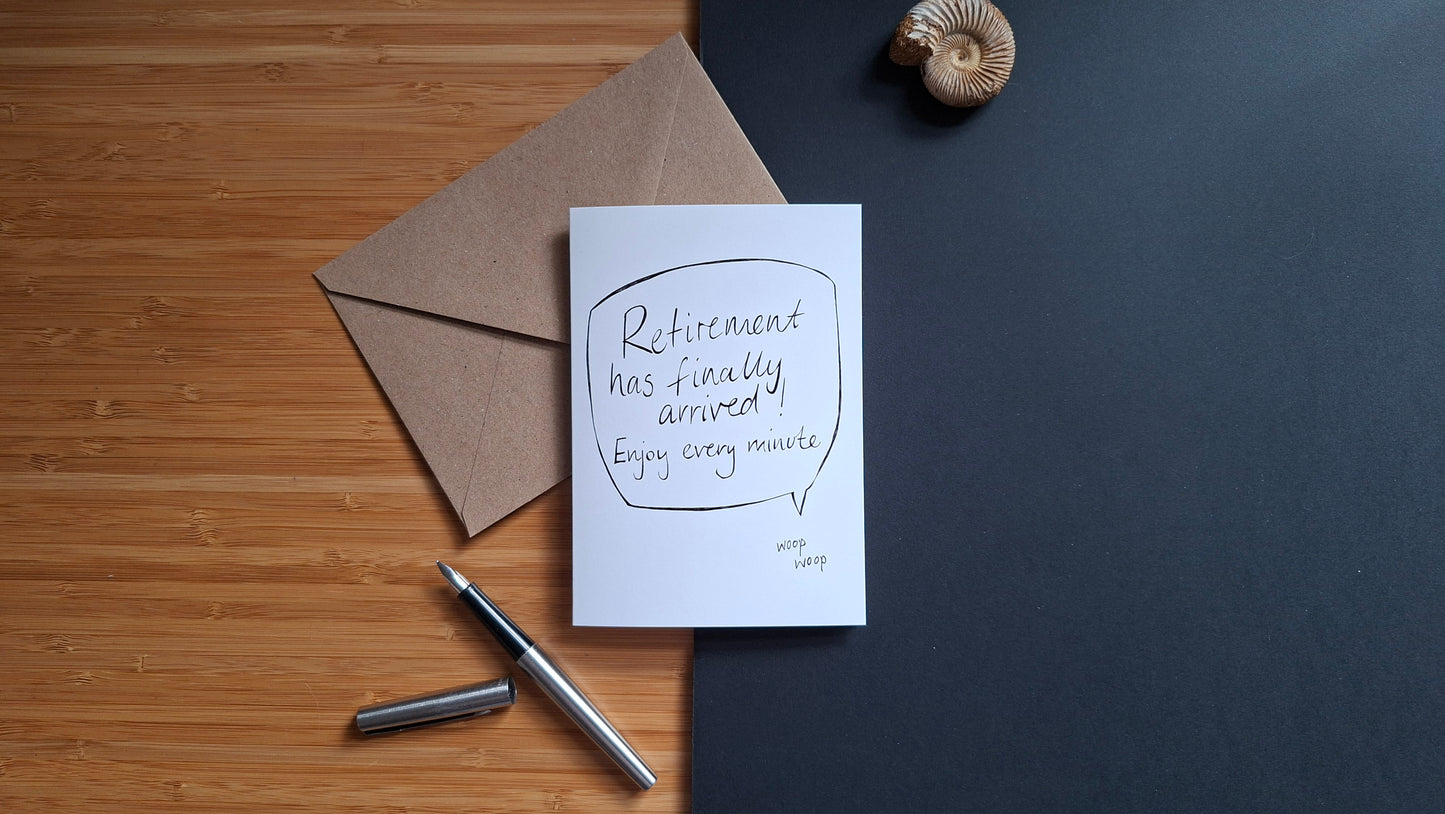 Retirement
has finally
arrived!
Enjoy every minute
woop
woop